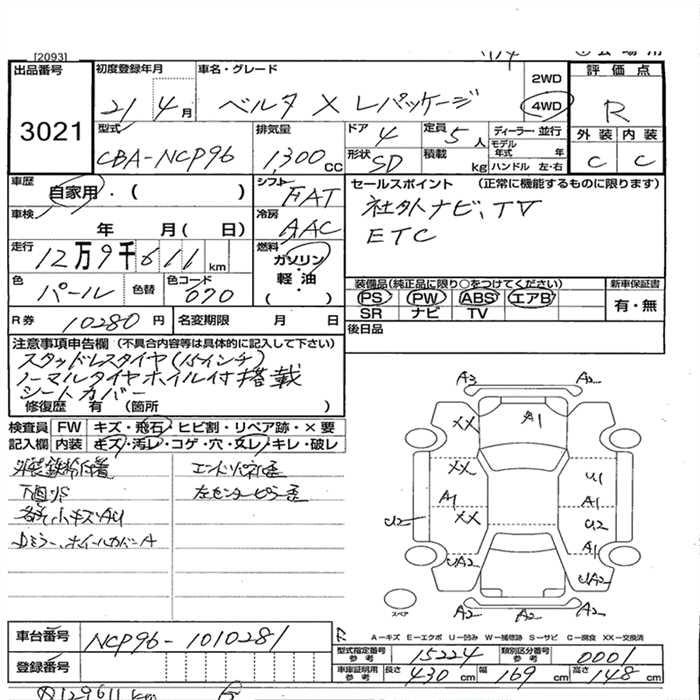 [2093]
出品番号
3021
初度登録年月
21年4月
車名・グレード
ベルタ X Lパッケージ
2WD
4WD
評価点
R
外装 内装
C C
型式
CBA-NCP96
排気量
1,300 CC
ドア 4
形状 SD
定員 5人
積載 kg
ディーラー・並行
モデル年式 年
ハンドル 左・右
車歴
自家用・( )
シフト
FAT
セールスポイント (正常に機能するものに限ります)
社外ナビ、TV
ETC
車検
年 月( 日)
冷房
AAC
走行
12万9千611km
燃料
ガソリン・
軽油・
( )
色
パール
色替
色コード
070
装備品(純正品に限り○をつけてください)
PS PW ABS エアB
SR ナビ TV
新車保証書
有・無
R券 10280円
名変期限 月 日
後日品
注意事項申告欄 (不具合内容等は具体的に記入して下さい)
スタッドレスタイヤ(15インチ)
ノーマルタイヤホイル付搭載
シートカバー
修復歴 有 (箇所 )
検査員 FW キズ・飛石・ヒビ割・リペア跡・×要
記入欄 内装 キズ・汚レ・コゲ・穴・スレ・キレ・破レ
エンドパネル歪
左センターピラー歪
各所小キズAU
Dミラー、ホイールカバーA
A3
XX A1
XX U1
A1 A1
U2 XX U2
A1
UA2 UA2
A2 A2 A2
スペア
R
A－キズ E－エクボ U－凹み W－補修跡 S－サビ C－腐食 XX－交換済
車台番号 NCP96-1010281
登録番号
型式指定番号 参考 15224
類別区分番号 参考 0001
車庫証明用 参考 長さ 430cm 幅 169cm 高さ 148cm
129611 km